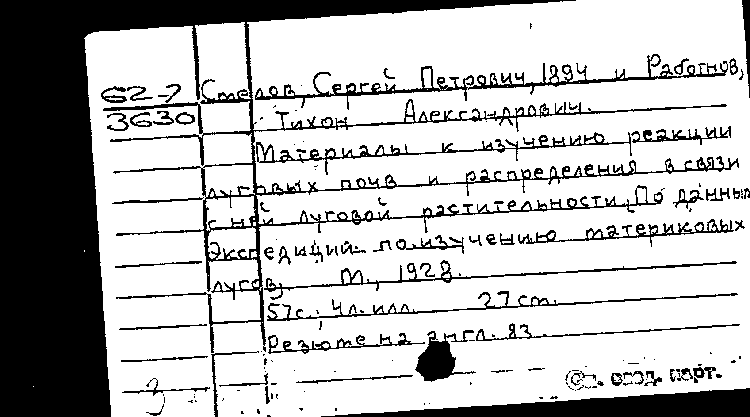 62-7 Смелов, Сергей Петрович, 1894 и Работнов,
3630 Тихон Александрович.
Материалы к изучению реакции
луговых почв и распределения в связи
с ней луговой растительности. По данным
Экспедиций по изучению материковых
лугов. М., 1928.
57с.; 4л. илл. 27 cm.
Резюме на англ. яз.
3
См. свод. карт.